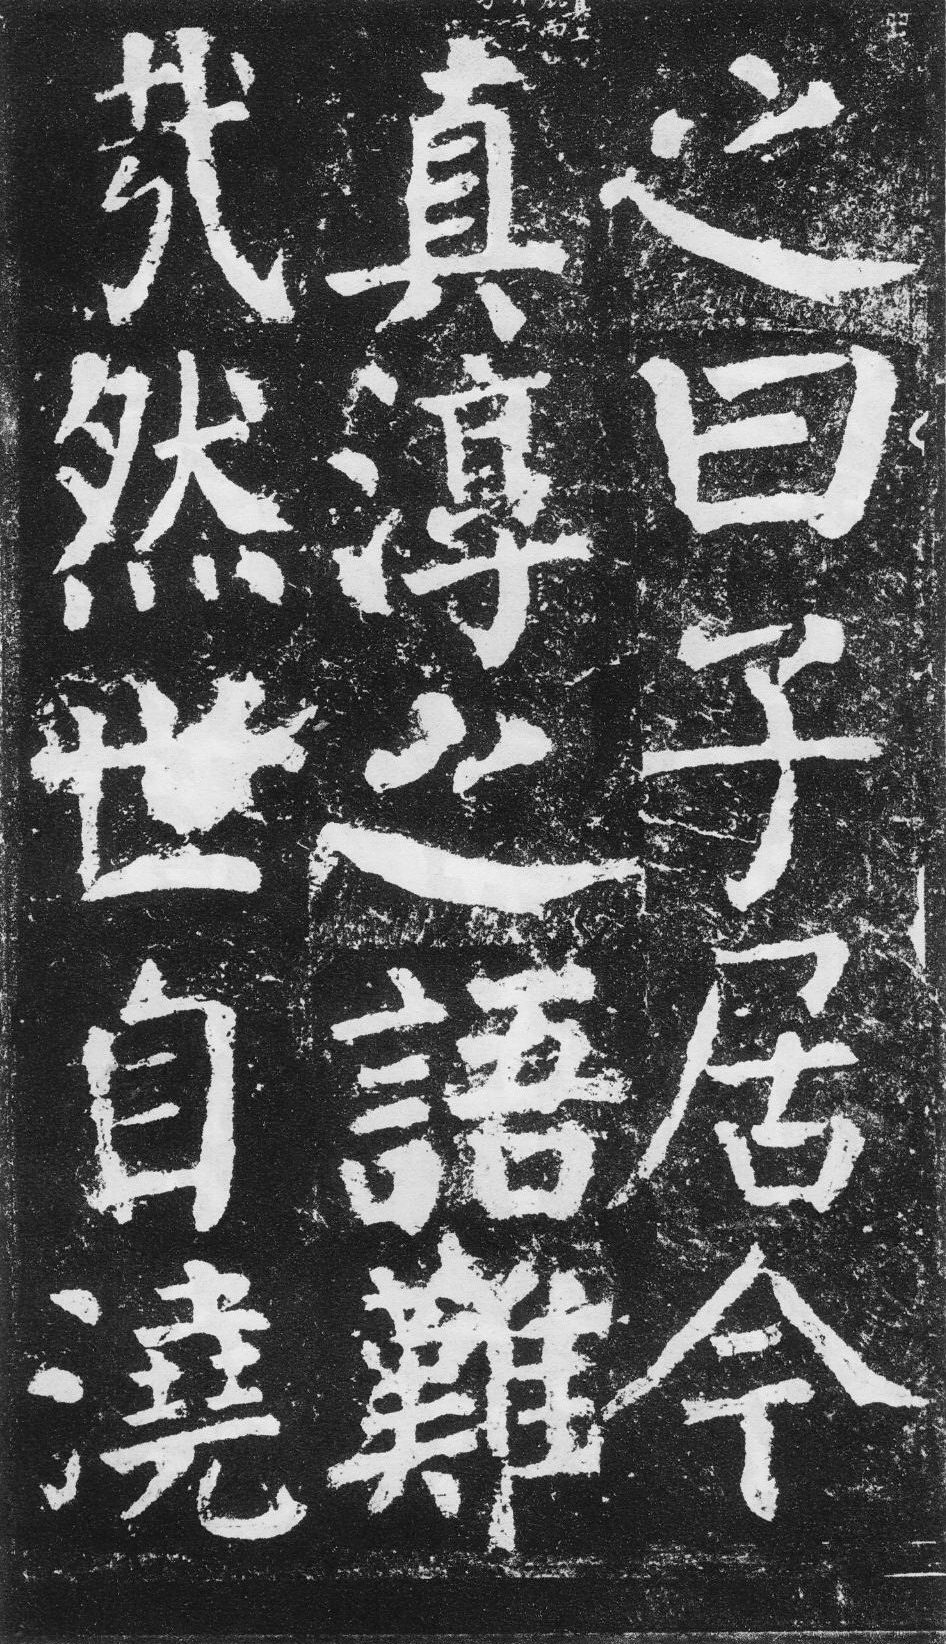 之曰子居今
真淳之語難
哉然世自澆